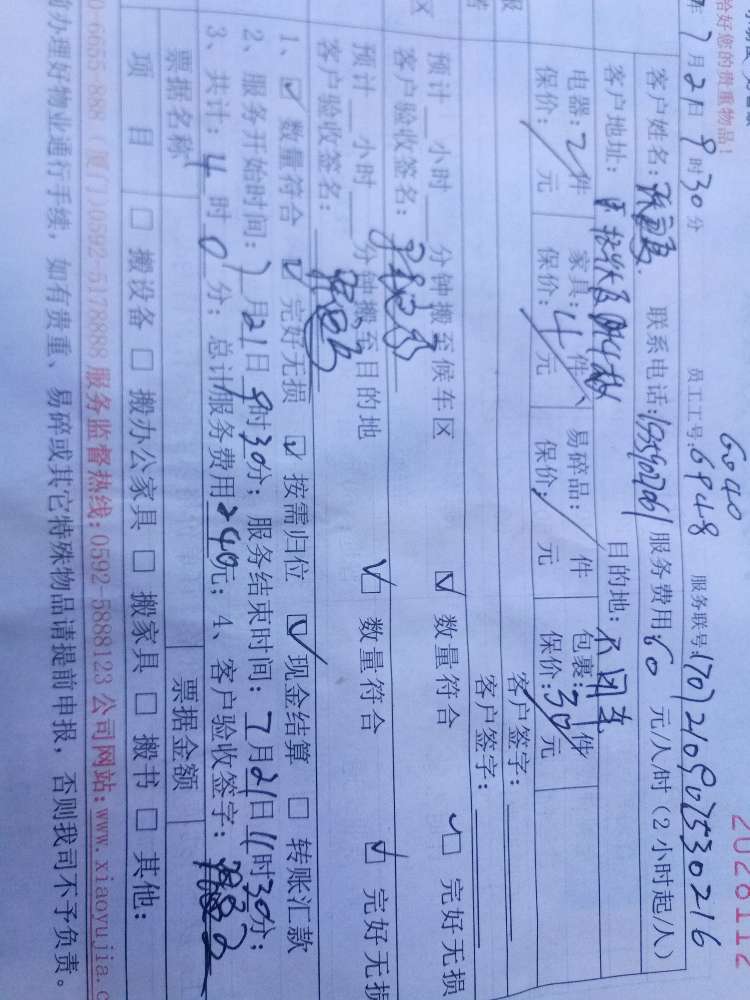 2028112
恰好您的贵重物品!
7月21日9时30分 员工工号:6948 6040 服务联号:1707210907530216
客户姓名: 联系电话: 服务费用:60 元/人/时(2小时起/人)
客户地址: 目的地:
电器:2件 家具:4件 易碎品:/件 包裹:30件
保价:/元 保价:/元 保价:/元 保价: 元
客户签字:
客户签字:
预计__小时__分钟搬至候车区 ☑数量符合 ☑完好无损
客户验收签名:
预计__小时__分钟搬至目的地 ☑数量符合 ☑完好无损
客户验收签名:
1、☑数量符合 ☑完好无损 ☑按需归位 ☑现金结算 □转账汇款
2、服务开始时间:7月21日9时30分;服务结束时间:7月21日11时30分;
3、共计:4时0分;总计服务费用240元;4、客户验收签字:
票据名称 票据金额
项目 □搬设备 □搬办公家具 □搬家具 □搬书 □其他:
0-6655-888 (厦门)0592-5178888 服务监督热线:0592-5888123 公司网站:www.xiaoyujia.c
前办理好物业通行手续,如有贵重、易碎或其它特殊物品请提前申报,否则我司不予负责。